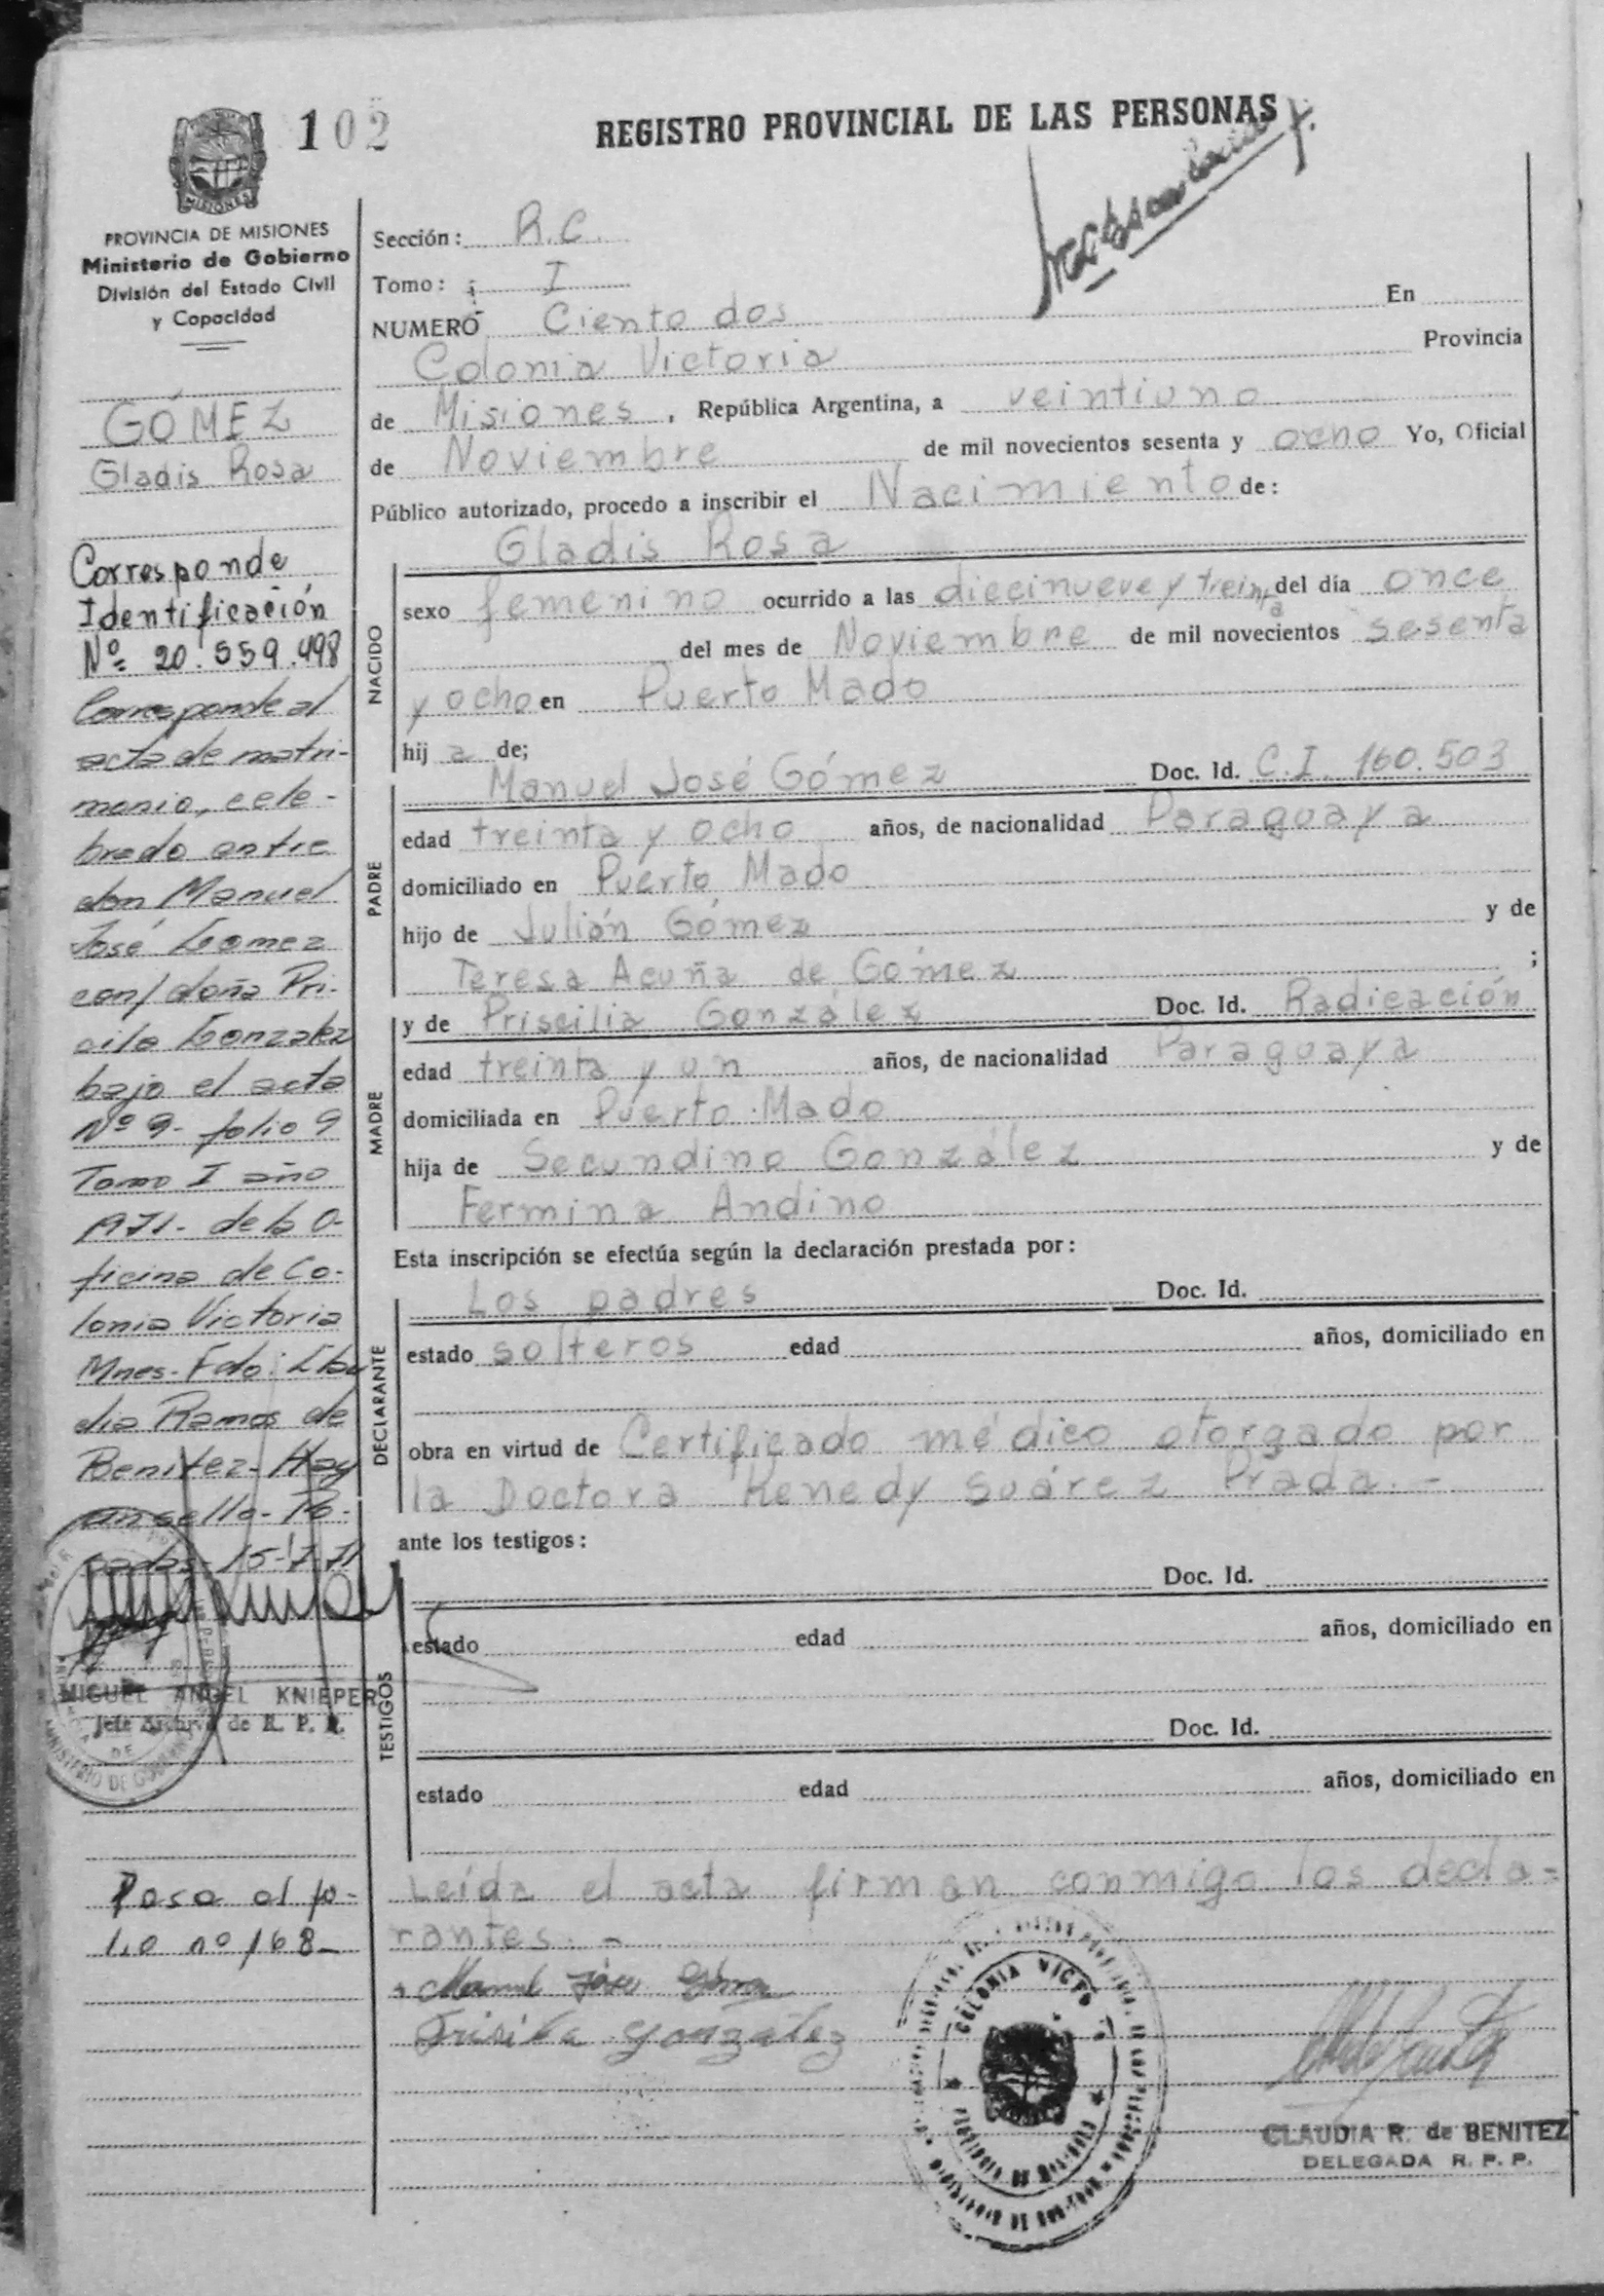 102
REGISTRO PROVINCIAL DE LAS PERSONAS
MISIONES
PROVINCIA DE MISIONES
Ministerio de Gobierno
División del Estado Civil
y Capacidad
GÓMEZ
Gladis Rosa
Corresponde
Identificación
Nº= 20.559.498
Corresponde al
acta de matri-
monio, cele-
brado entre
don Manuel
José Gomez
con/ doña Pri-
cila Gonzalez
bajo el acta
Nº 9- folio 9
Tomo I año
1971- de la O-
ficina de Co-
lonia Victoria
Mnes- Fdo:
dia Ramos de
Benitez- Hay
un sello- Po-
sadas- 15-
MIGUEL ANGEL KNIEPER
Jefe Archivo de R. P. P.
MINISTERIO DE GOBIERNO
Pasa al fo-
lio nº 168-
Sección: R.C.
Tomo: I
NUMERO Ciento dos En
Colonia Victoria Provincia
de Misiones, República Argentina, a veintiuno
de Noviembre de mil novecientos sesenta y ocho Yo, Oficial
Público autorizado, procedo a inscribir el Nacimiento de:
Gladis Rosa
NACIDO
sexo femenino ocurrido a las diecinueve y treinta del día once
del mes de Noviembre de mil novecientos sesenta
y ocho en Puerto Mado
hij a de;
Manuel José Gómez Doc. Id. C.I. 160.503
PADRE
edad treinta y ocho años, de nacionalidad Paraguaya
domiciliado en Puerto Mado
hijo de Julián Gómez y de
Teresa Acuña de Gómez ;
y de Priscilia González Doc. Id. Radicación
MADRE
edad treinta y un años, de nacionalidad Paraguaya
domiciliada en Puerto Mado
hija de Secundino González y de
Fermina Andino
Esta inscripción se efectúa según la declaración prestada por:
Los padres Doc. Id.
DECLARANTE
estado solteros edad años, domiciliado en
obra en virtud de Certificado médico otorgado por
la Doctora Kenedy Suárez Prada.-
ante los testigos:
Doc. Id.
TESTIGOS
estado edad años, domiciliado en
Doc. Id.
estado edad años, domiciliado en
Leída el acta firman conmigo los decla-
rantes.-
Manuel José Gómez
González
COLONIA VICTORIA
CLAUDIA R. de BENITEZ
DELEGADA R. P. P.